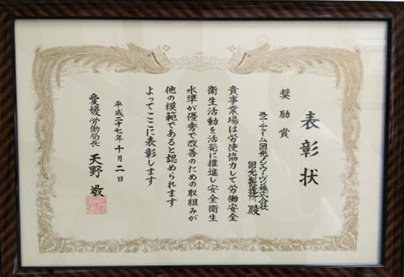 表彰状
奨励賞
株式会社
殿
貴事業場は労使協力して労働安全
衛生活動を活発に推進し安全衛生
水準が優秀で改善のための取組みが
他の模範であると認められます
よってここに表彰します
平成二十七年十月二日
愛媛労働局長 天野 敬